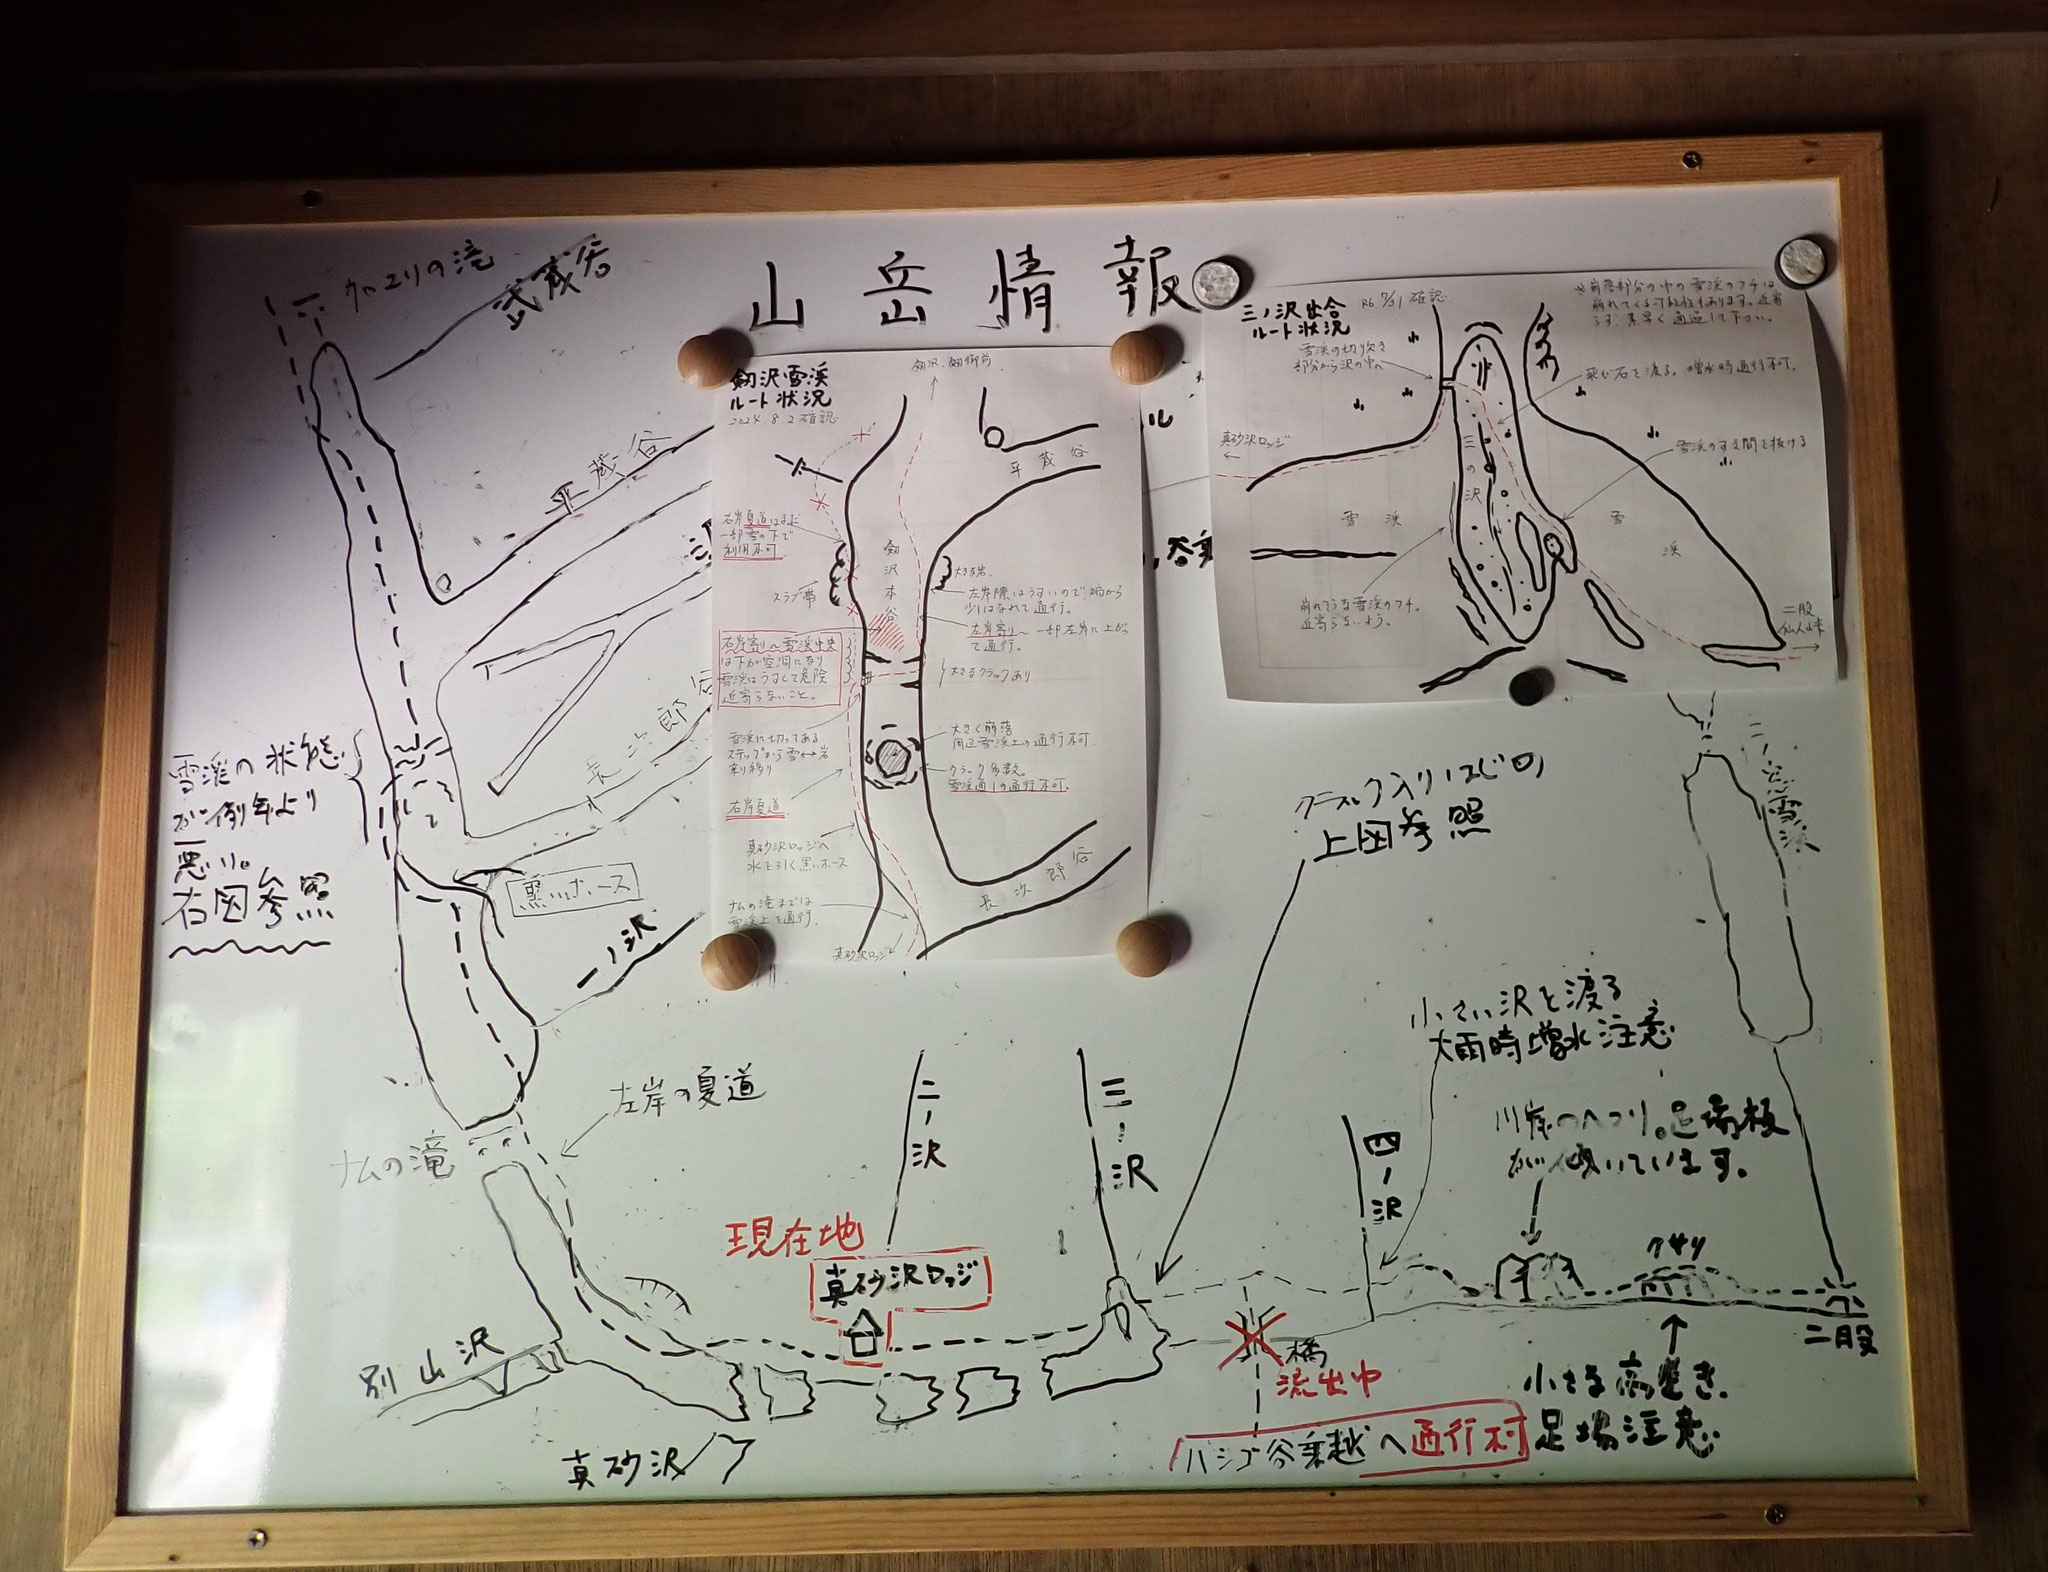 山岳情報
武蔵谷
平蔵谷
長次郎谷
雪渓の状態
が例年より
悪い。
右図参照
黒いホース
一ノ沢
左岸の夏道
ナムの滝
別山沢
真砂沢
現在地
真砂沢ロッジ
二ノ沢
三ノ沢
四ノ沢
上図参照
小さい沢を渡る
大雨時増水注意
足場板
います。
クサリ
二股
小さな高巻き
足場注意
橋
流出中
ハシゴ谷乗越へ通行不可
剱沢雪渓
ルート状況
2024.8.2確認
剱沢、剱御前
平蔵谷
右岸夏道はまだ
一部雪の下で
利用不可
スラブ帯
剱沢本谷
大きな岩
左岸際はうすいので、端から
少しはなれて通行。
左岸寄り〜一部左岸に上がっ
て通行。
大きなクラックあり
右岸寄り〜雪渓中央
は下が空洞になり
雪渓はうすくて危険
近寄らないこと。
大きく崩落
周辺雪渓上の通行不可
クラック多数。
雪渓通しの通行不可。
雪渓に切ってある
ステップから雪↔岩
乗り移り
右岸夏道
真砂沢ロッジへ
水を引く黒いホース
長次郎谷
ナムの滝までは
雪渓上を通行。
真砂沢ロッジ
三ノ沢出合
ルート状況
R6 7/31 確認
※崩落部分の中の雪渓のフチは
崩れてくる可能性もあります。近寄
らず、素早く通過して下さい。
雪渓の切り欠き
部分から沢の中へ
飛び石を渡る。増水時通行不可。
真砂沢ロッジ
三の沢
雪渓のすき間を抜ける
雪渓
雪渓
崩れそうな雪渓のフチ。
近寄らないよう。
二股
仙人山荘